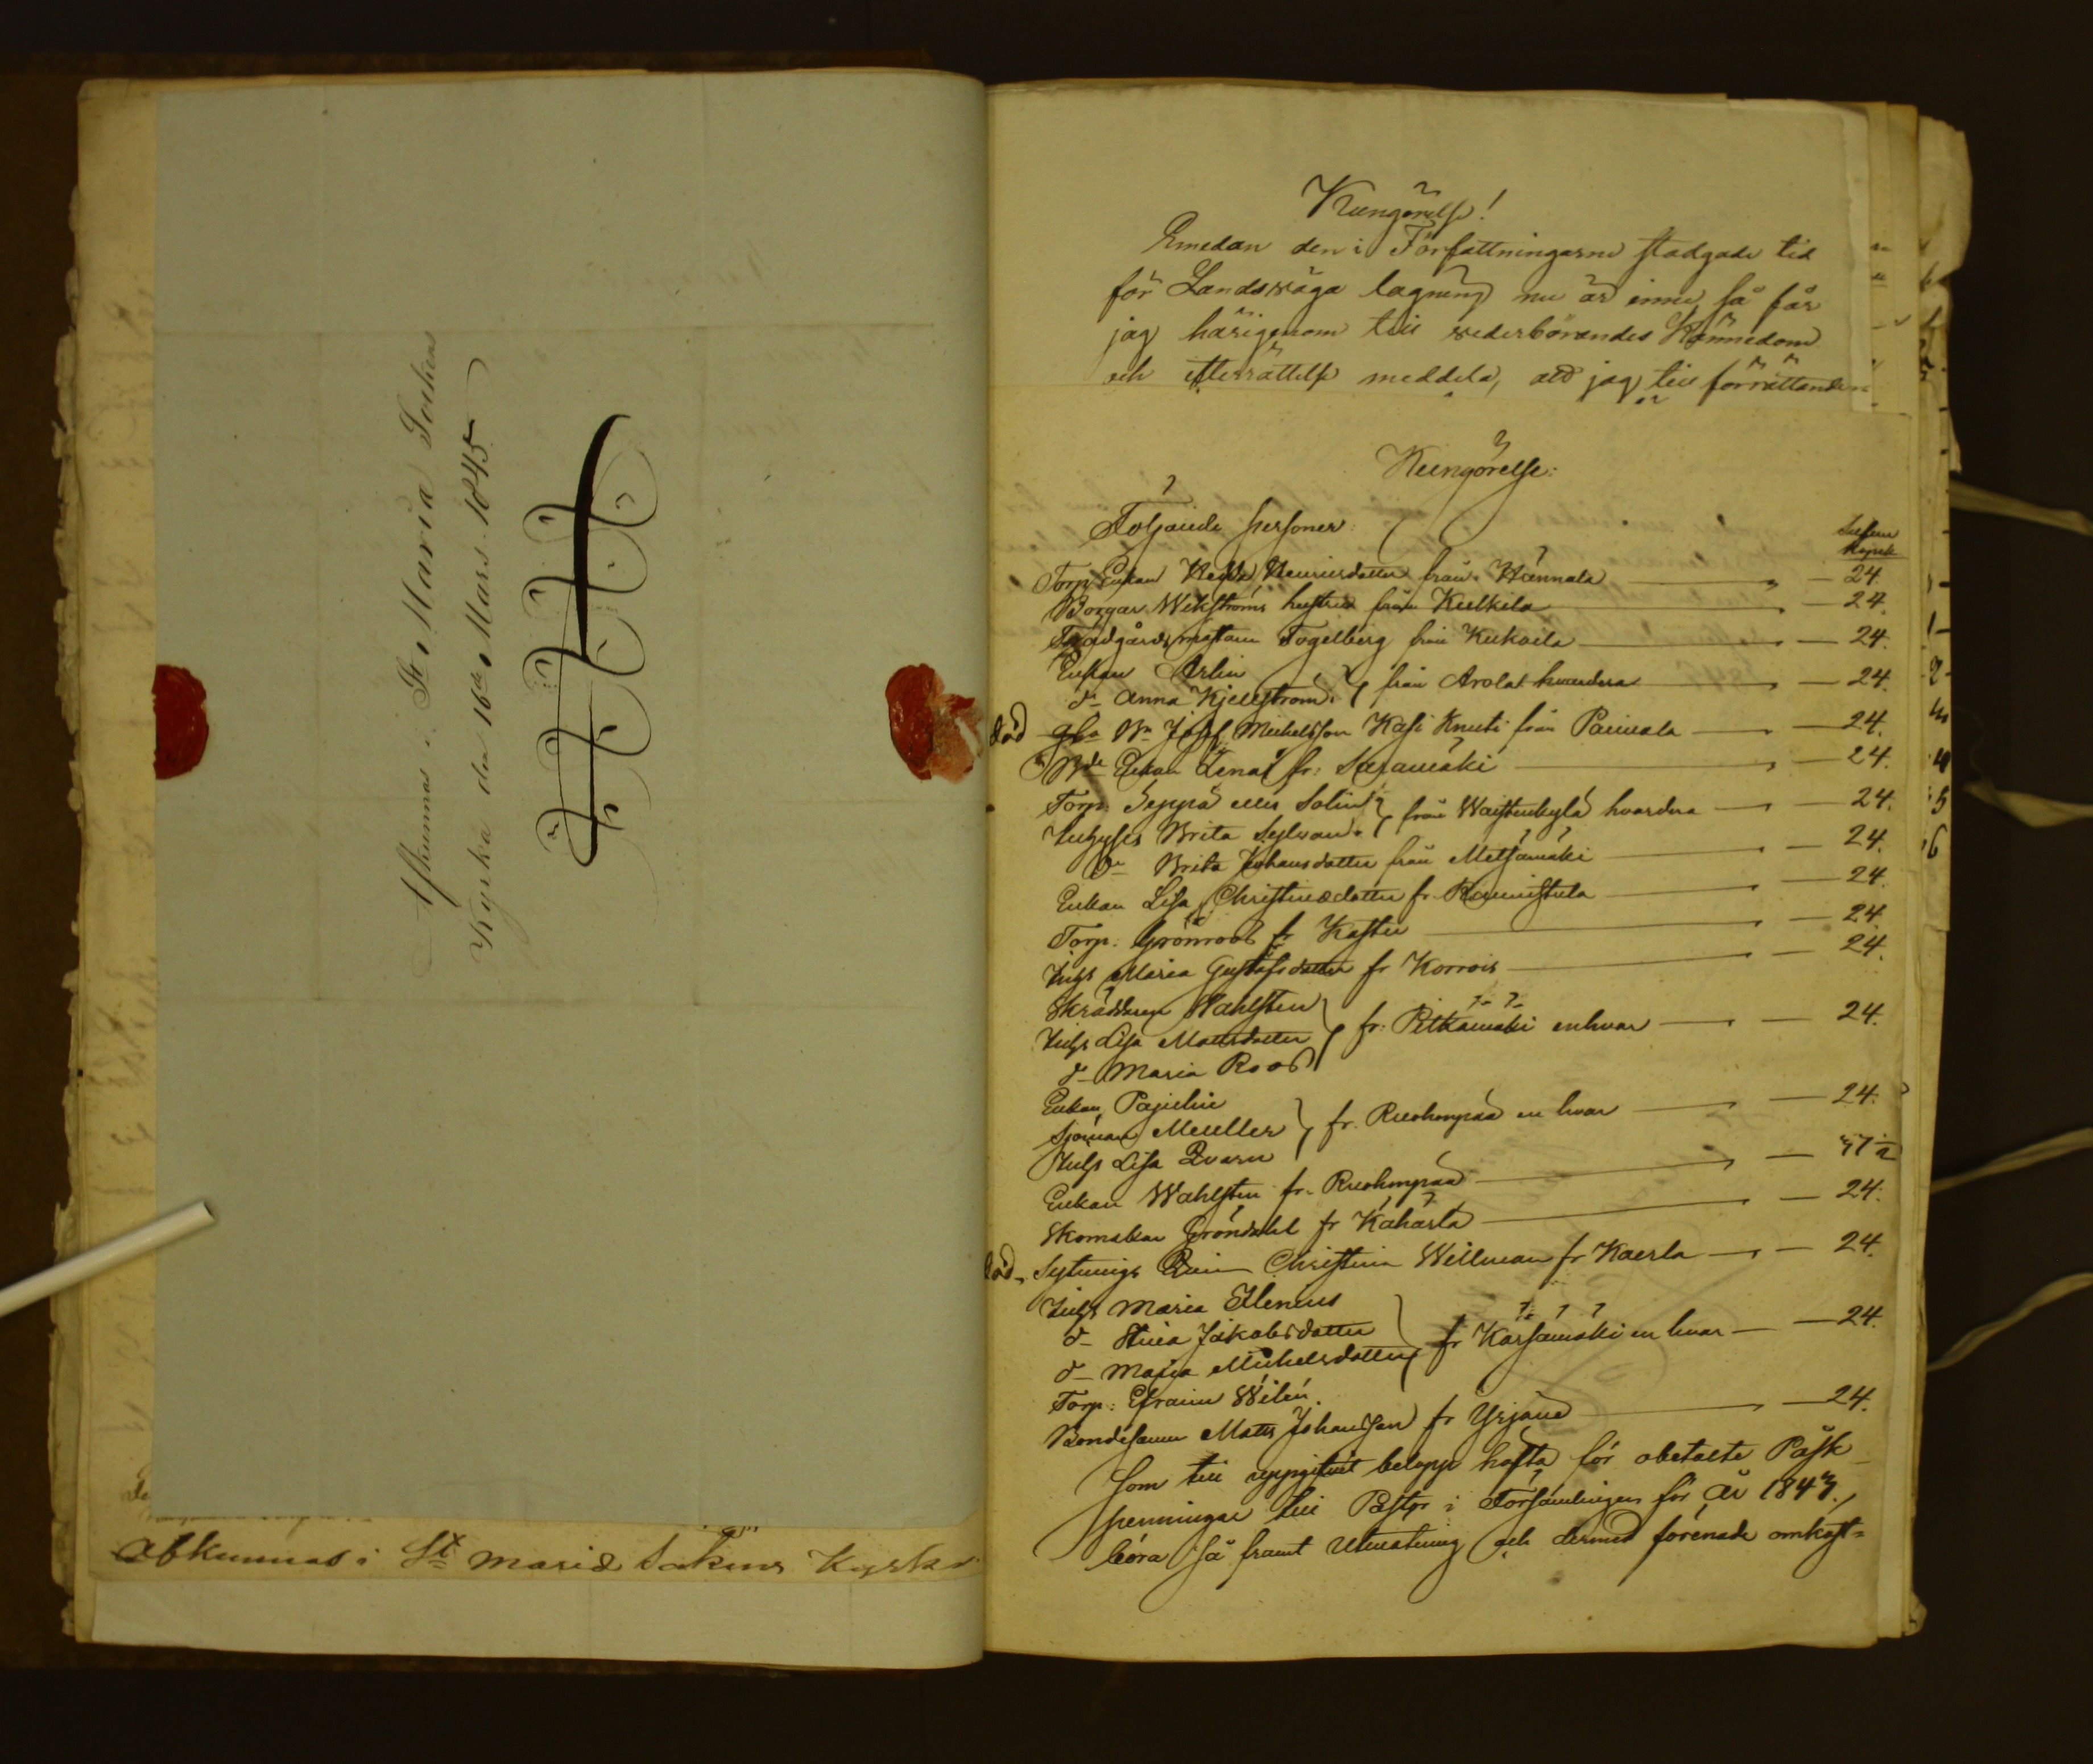 Afkunnas i St Maria Sockens
Kyrka den 16de Mars 1845
Afkunnas i St Mariæ Sokens Kyrka
Kungörelse!
Emedan den i Författningarne stadgade tid
för Landsväga lagning nu är inne, så får
jag härigenom till vederbörandes Kännedom
och efterrättelse meddela, att jag till förrättande
Kungörelse:
Följande personer:
Silfver
Kopek
Torp. Enkan Henricsdotter från Hännala — 24.
Borgar Wikströms hustru från Kulkila — 24.
Trädgårdsmästaren Fogelberg från Kukoila — 24.
Enkan Arlin
d:o Anna Kjellström från Arola hvardera — 24.
död gla Bn Josef Michelsson Kasi Knuti från Paimala — 24.
Bde Enkan Lena fr: — 24.
Torp. Seppä eller Salin
Inhyses Brita Sylvan från Waistenkylä hvardera — 24.
Do Brita Johansdotter från Metsämäki — 24.
Enkan Lisa Christiersdotter fr — 24.
Torp. Grönroos fr Kastu — 24.
Inhs Maria Gustafsdotter fr Korrois — 24.
Skräddaren Wahlsten
Inhs Lisa Mattsdotter fr: Pitkämäki enhvar — 24.
d:o Maria Roos
Enkan
Sjöman Mueller fr. Ruohonpää en hvar — 24.
Inhs Lisa Qvarn
Enkan Wahlsten fr. Ruohonpää — 
Skomakar Gröndahl fr Kähärlä — 24.
död Sytnings Christina Wellman fr Kaerla — 24.
Inhs Maria
d:o Stina Jakobsdotter fr Kärsämäki en hvar — 24.
d:o Maria Michelsdotter
Torp: Efraim Wilén.
Bondesonen Matts Johansson fr Yrjänä — 24.
Som till uppgifvit belopp häfta för obetalte Påsk
penningar till Pastor i Församlingen för år 1843.
böra så framt Utmätning och dermed förenade omkost=